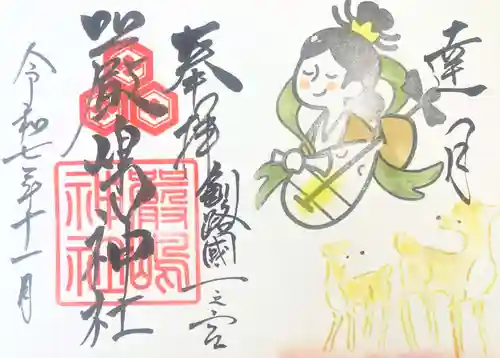 達月
奉拝
釧路國一之宮
嚴島神社
嚴嶋
神社
令和七年十一月